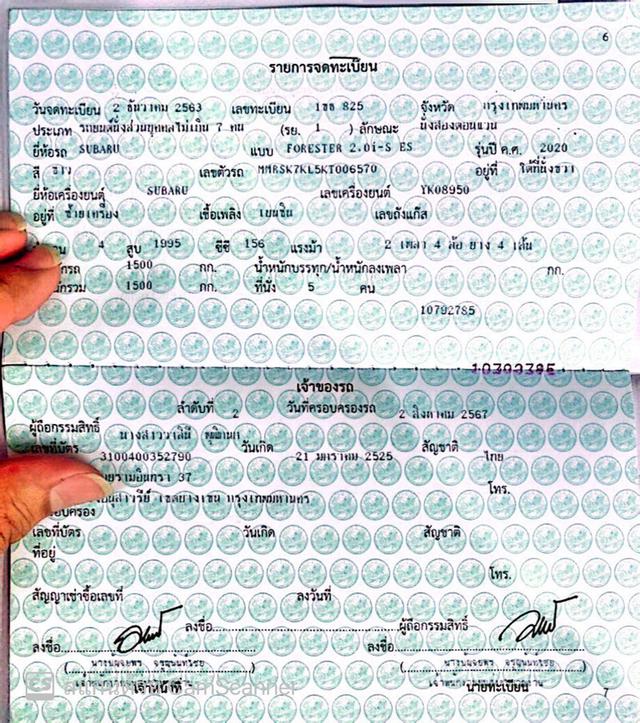 6
รายการจดทะเบียน
วันจดทะเบียน 2 ธันวาคม 2563 เลขทะเบียน 1ขอ 825 จังหวัด กรุงเทพมหานคร
ประเภท รถยนต์นั่งส่วนบุคคลไม่เกิน 7 คน (รย. 1 ) ลักษณะ นั่งสองตอนแวน
ยี่ห้อรถ SUBARU แบบ FORESTER 2.0i-S ES รุ่นปี ค.ศ. 2020
สี ขาว เลขตัวรถ MMRSK7KL5KT006570 อยู่ที่ ใต้ที่นั่งขวา
ยี่ห้อเครื่องยนต์ SUBARU เลขเครื่องยนต์ YK08950
อยู่ที่ ซ้ายเครื่อง เชื้อเพลิง เบนซิน เลขถังแก๊ส
4 สูบ 1995 ซีซี 156 แรงม้า 2 เพลา 4 ล้อ ยาง 4 เส้น
1500 กก. น้ำหนักบรรทุก/น้ำหนักลงเพลา กก.
1500 กก. ที่นั่ง 5 คน
10792785
เจ้าของรถ
ลำดับที่ 2 วันที่ครอบครองรถ 2 สิงหาคม 2567
ผู้ถือกรรมสิทธิ์ นางสาววาสินี
เลขที่บัตร 3100400352790 วันเกิด 21 มกราคม 2525 สัญชาติ ไทย
รามอินทรา 37 โทร.
เขตบางเขน กรุงเทพมหานคร
เลขที่บัตร วันเกิด สัญชาติ
ที่อยู่
โทร.
สัญญาเช่าซื้อเลขที่ ลงวันที่
ลงชื่อ ผู้ถือกรรมสิทธิ์
ลงชื่อ ลงชื่อ
เจ้าหน้าที่ นายทะเบียน
CS CamScanner
7